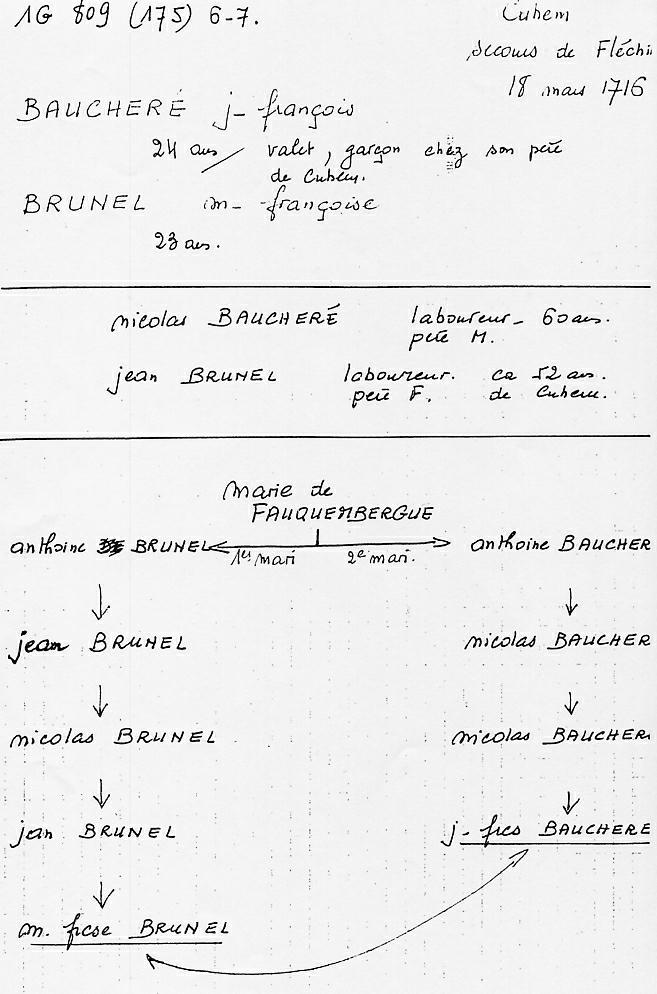 1G 809 (175) 6-7.
Cuhem
secours de Fléchi
18 mars 1716
BAUCHERÉ j- françois
24 ans / valet, garçon chez son père
de Cuhem.
BRUNEL m- françoise
23 ans.
nicolas BAUCHERÉ laboureur_ 60 ans.
père M.
jean BRUNEL laboureur. ca 52 ans.
père F. de Cuhem.
Marie de
FAUQUEMBERGUE
anthoine BRUNEL 1er mari 2e mari. anthoine BAUCHER
jean BRUNEL nicolas BAUCHER
nicolas BRUNEL nicolas BAUCHER
jean BRUNEL j- fçes BAUCHERE
m. fcse BRUNEL